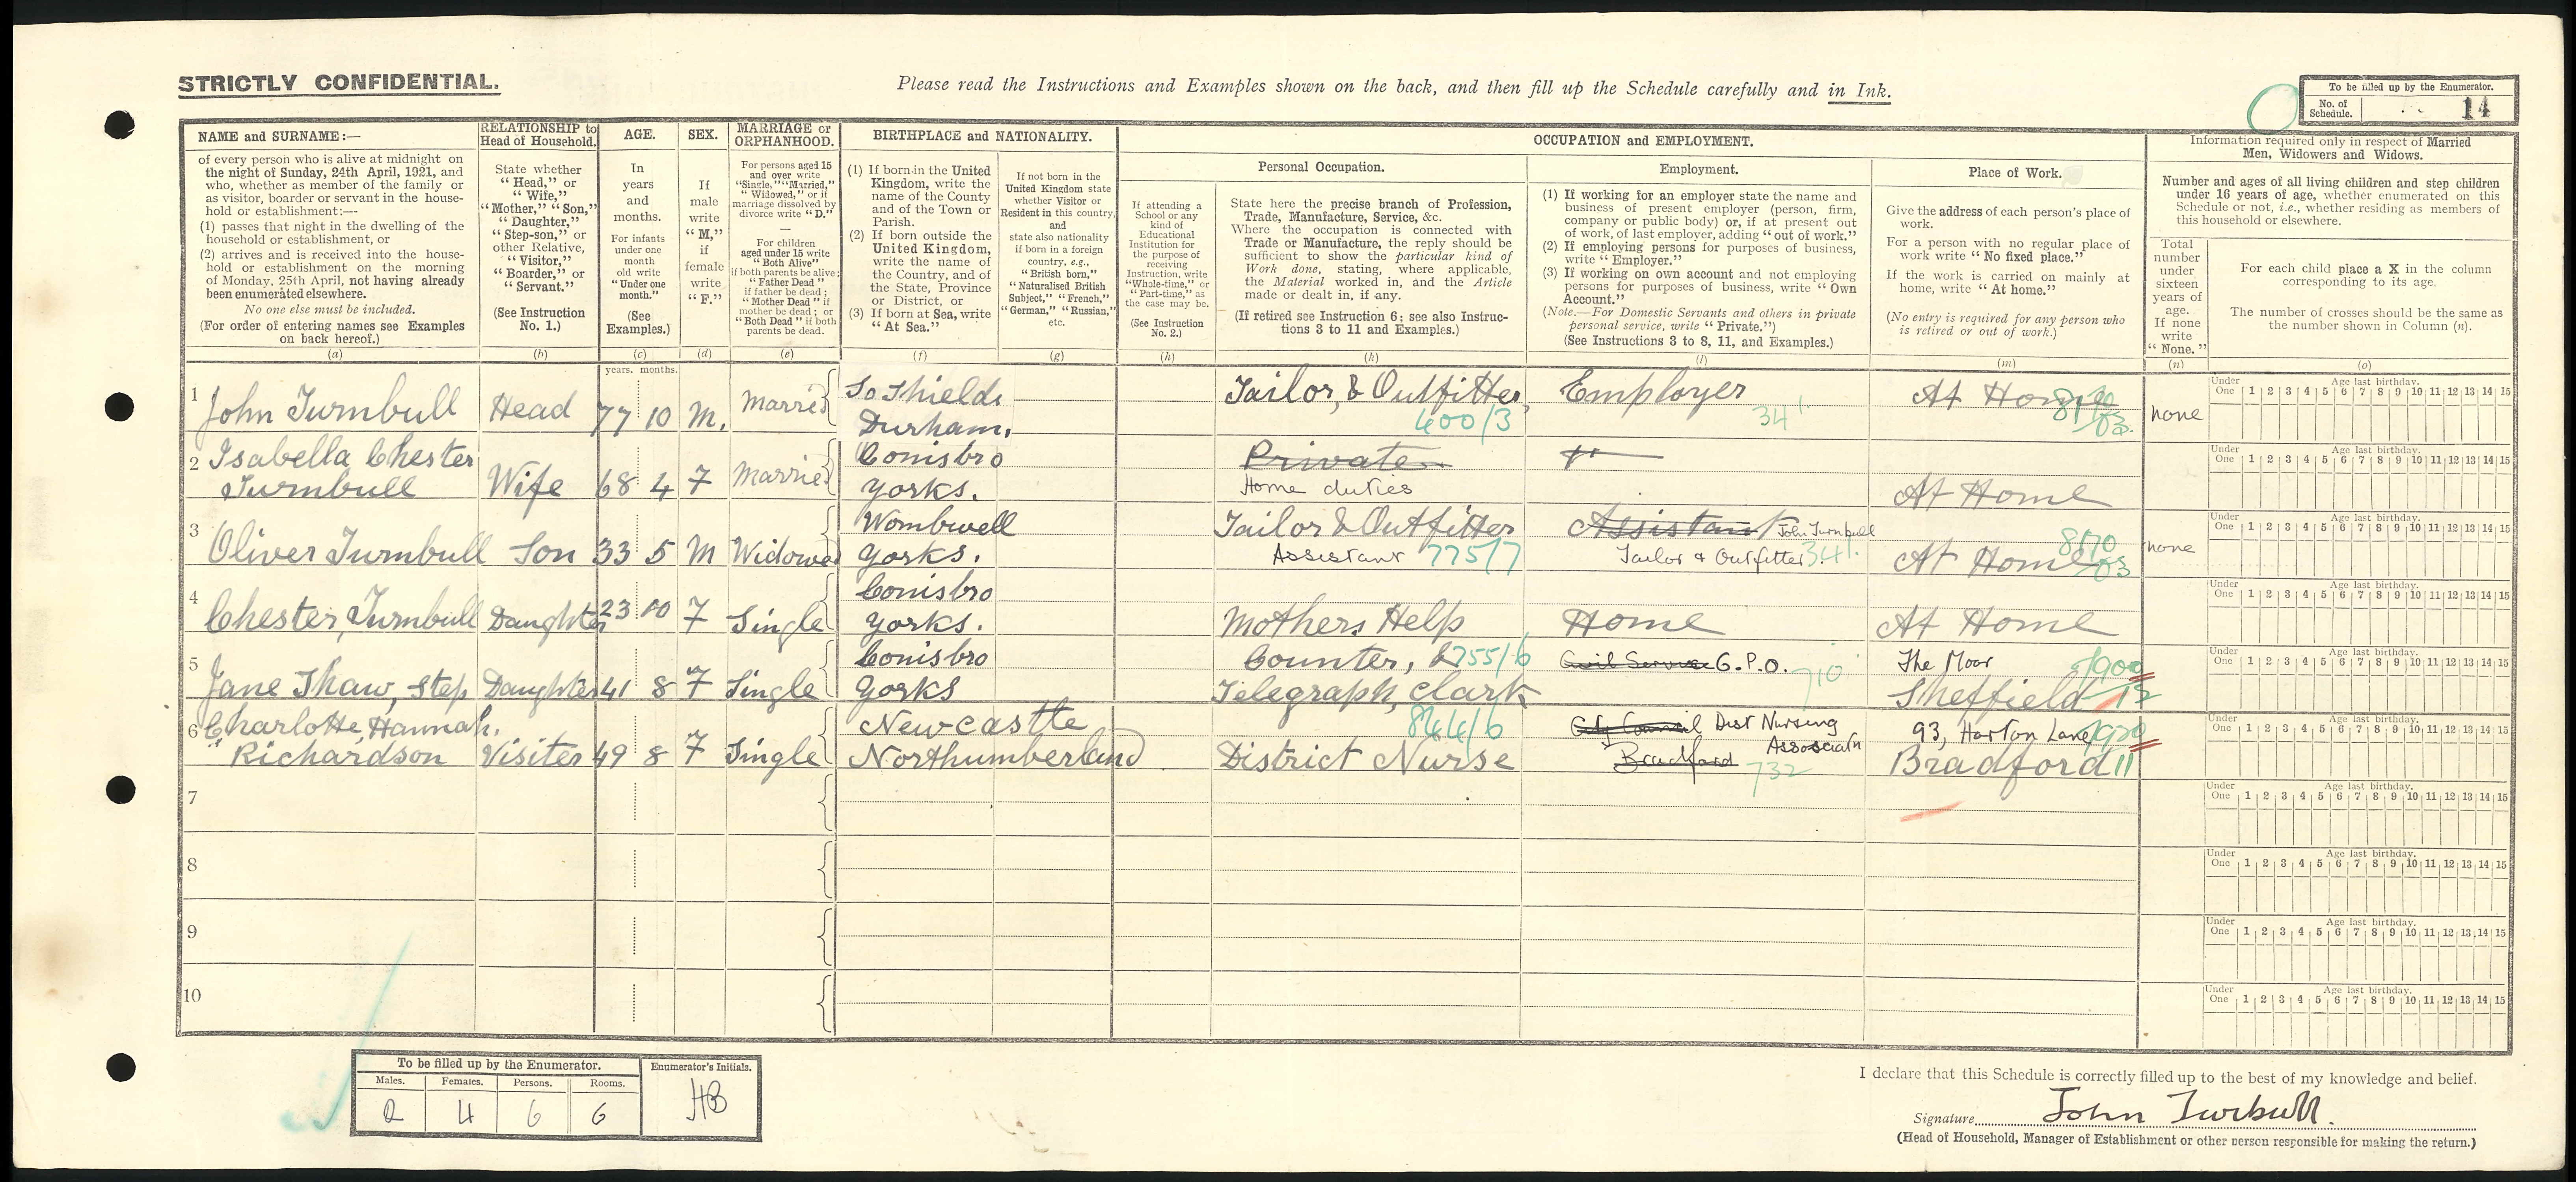 STRICTLY CONFIDENTIAL.
Please read the Instructions and Examples shown on the back, and then fill up the Schedule carefully and in Ink.
To be filled up by the Enumerator.
No. of Schedule. 14
NAME and SURNAME:—
of every person who is alive at midnight on
the night of Sunday, 24th April, 1921, and
who, whether as member of the family or
as visitor, boarder or servant in the house-
hold or establishment:—
(1) passes that night in the dwelling of the
household or establishment, or
(2) arrives and is received into the house-
hold or establishment on the morning
of Monday, 25th April, not having already
been enumerated elsewhere.
No one else must be included.
(For order of entering names see Examples
on back hereof.)
(a)
RELATIONSHIP to
Head of Household.
State whether
"Head," or
"Wife,"
"Mother," "Son,"
"Daughter,"
"Step-son," or
other Relative,
"Visitor,"
"Boarder," or
"Servant."
(See Instruction
No. 1.)
(b)
AGE.
In
years
and
months.
For infants
under one
month
old write
"Under one
month."
(See
Examples.)
(c)
SEX.
If
male
write
"M,"
if
female
write
"F."
(d)
MARRIAGE or
ORPHANHOOD.
For persons aged 15
and over write
"Single," "Married,"
"Widowed," or if
marriage dissolved by
divorce write "D."
—
For children
aged under 15 write
"Both Alive"
if both parents be alive;
"Father Dead"
if father be dead;
"Mother Dead" if
mother be dead; or
"Both Dead" if both
parents be dead.
(e)
BIRTHPLACE and NATIONALITY.
(1) If born in the United
Kingdom, write the
name of the County
and of the Town or
Parish.
(2) If born outside the
United Kingdom,
write the name of
the Country, and of
the State, Province
or District, or
(3) If born at Sea, write
"At Sea."
(f)
If not born in the
United Kingdom state
whether Visitor or
Resident in this country,
and
state also nationality
if born in a foreign
country, e.g.,
"British born,"
"Naturalised British
Subject," "French,"
"German," "Russian,"
etc.
(g)
OCCUPATION and EMPLOYMENT.
If attending a
School or any
kind of
Educational
Institution for
the purpose of
receiving
Instruction, write
"Whole-time," or
"Part-time," as
the case may be.
(See Instruction
No. 2.)
(h)
Personal Occupation.
State here the precise branch of Profession,
Trade, Manufacture, Service, &c.
Where the occupation is connected with
Trade or Manufacture, the reply should be
sufficient to show the particular kind of
Work done, stating, where applicable,
the Material worked in, and the Article
made or dealt in, if any.
(If retired see Instruction 6; see also Instruc-
tions 3 to 11 and Examples.)
(k)
Employment.
(1) If working for an employer state the name and
business of present employer (person, firm,
company or public body) or, if at present out
of work, of last employer, adding "out of work."
(2) If employing persons for purposes of business,
write "Employer."
(3) If working on own account and not employing
persons for purposes of business, write "Own
Account."
(Note.—For Domestic Servants and others in private
personal service, write "Private.")
(See Instructions 3 to 8, 11, and Examples.)
(l)
Place of Work.
Give the address of each person's place of
work.
For a person with no regular place of
work write "No fixed place."
If the work is carried on mainly at
home, write "At home."
(No entry is required for any person who
is retired or out of work.)
(m)
Information required only in respect of Married
Men, Widowers and Widows.
Number and ages of all living children and step children
under 16 years of age, whether enumerated on this
Schedule or not, i.e., whether residing as members of
this household or elsewhere.
Total
number
under
sixteen
years of
age.
If none
write
"None."
(n)
For each child place a X in the column
corresponding to its age.
The number of crosses should be the same as
the number shown in Column (n).
(o)
years. months.
Under One Age last birthday. 1 2 3 4 5 6 7 8 9 10 11 12 13 14 15
1 John Turnbull Head 77 10 M. Married So Shields Durham. Tailor, & Outfitter, 400/3 Employer 34 At Home none
Under One Age last birthday. 1 2 3 4 5 6 7 8 9 10 11 12 13 14 15
2 Isabella Chester Turnbull Wife 68 4 F Married Conisbro Yorks. Private Home duties At Home
Under One Age last birthday. 1 2 3 4 5 6 7 8 9 10 11 12 13 14 15
3 Oliver Turnbull Son 33 5 M Widowed Wombwell Yorks. Tailor & Outfitter Assistant 775/7 Assistant John Turnbull Tailor & Outfitter 341. At Home 8170/03 none
Under One Age last birthday. 1 2 3 4 5 6 7 8 9 10 11 12 13 14 15
4 Chester Turnbull Daughter 23 10 F Single Conisbro Yorks. Mothers Help Home At Home
Under One Age last birthday. 1 2 3 4 5 6 7 8 9 10 11 12 13 14 15
5 Jane Shaw, Step Daughter 41 8 F Single Conisbro Yorks Counter, & 755/6 Telegraph, Clark Civil Service G.P.O. 710 The Moor Sheffield
Under One Age last birthday. 1 2 3 4 5 6 7 8 9 10 11 12 13 14 15
6 Charlotte, Hannah, Richardson Visiter 49 8 F Single Newcastle Northumberland 844/6 District Nurse City Council Dist Nursing Associatn Bradford 732 93, Horton Lane Bradford 11
Under One Age last birthday. 1 2 3 4 5 6 7 8 9 10 11 12 13 14 15
7
Under One Age last birthday. 1 2 3 4 5 6 7 8 9 10 11 12 13 14 15
8
Under One Age last birthday. 1 2 3 4 5 6 7 8 9 10 11 12 13 14 15
9
Under One Age last birthday. 1 2 3 4 5 6 7 8 9 10 11 12 13 14 15
10
Under One Age last birthday. 1 2 3 4 5 6 7 8 9 10 11 12 13 14 15
To be filled up by the Enumerator.
Males. Females. Persons. Rooms.
2 4 6 6
Enumerator's Initials.
HB
I declare that this Schedule is correctly filled up to the best of my knowledge and belief.
Signature John Turnbull.
(Head of Household, Manager of Establishment or other person responsible for making the return.)